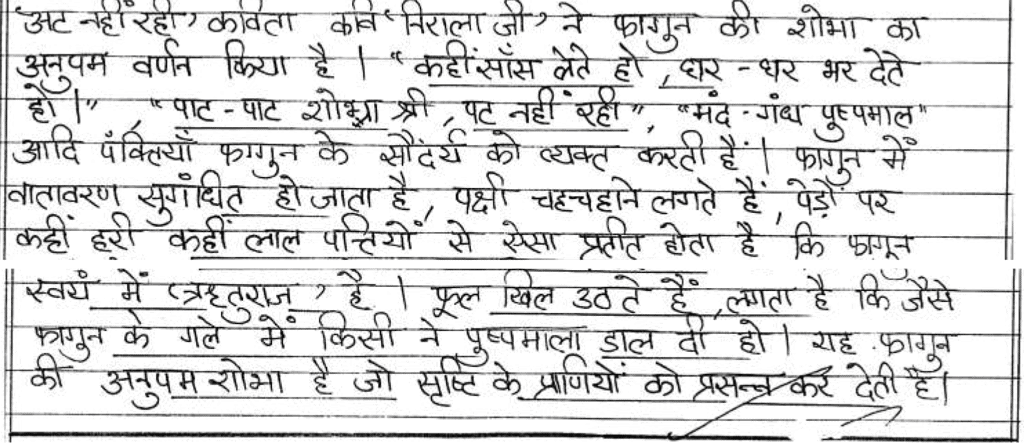 'अट नहीं रही' कविता कवि 'निराला जी' ने फागुन की शोभा का
अनुपम वर्णन किया है । "कहीं साँस लेते हो, घर - घर भर देते
हो ।", "पाट - पाट शोभा श्री, पट नहीं रही", "मंद - गंध पुष्पमाल"
आदि पंक्तियाँ फागुन के सौंदर्य को व्यक्त करती हैं । फागुन में
वातावरण सुगंधित हो जाता है, पक्षी चहचहाने लगते हैं, पेड़ों पर
कहीं हरी कहीं लाल पत्तियों से ऐसा प्रतीत होता है कि फागुन
स्वयं में 'ऋतुराज' है । फूल खिल उठते हैं, लगता है कि जैसे
फागुन के गले में किसी ने पुष्पमाला डाल दी हो । यह फागुन
की अनुपम शोभा है जो सृष्टि के प्राणियों को प्रसन्न कर देती है।